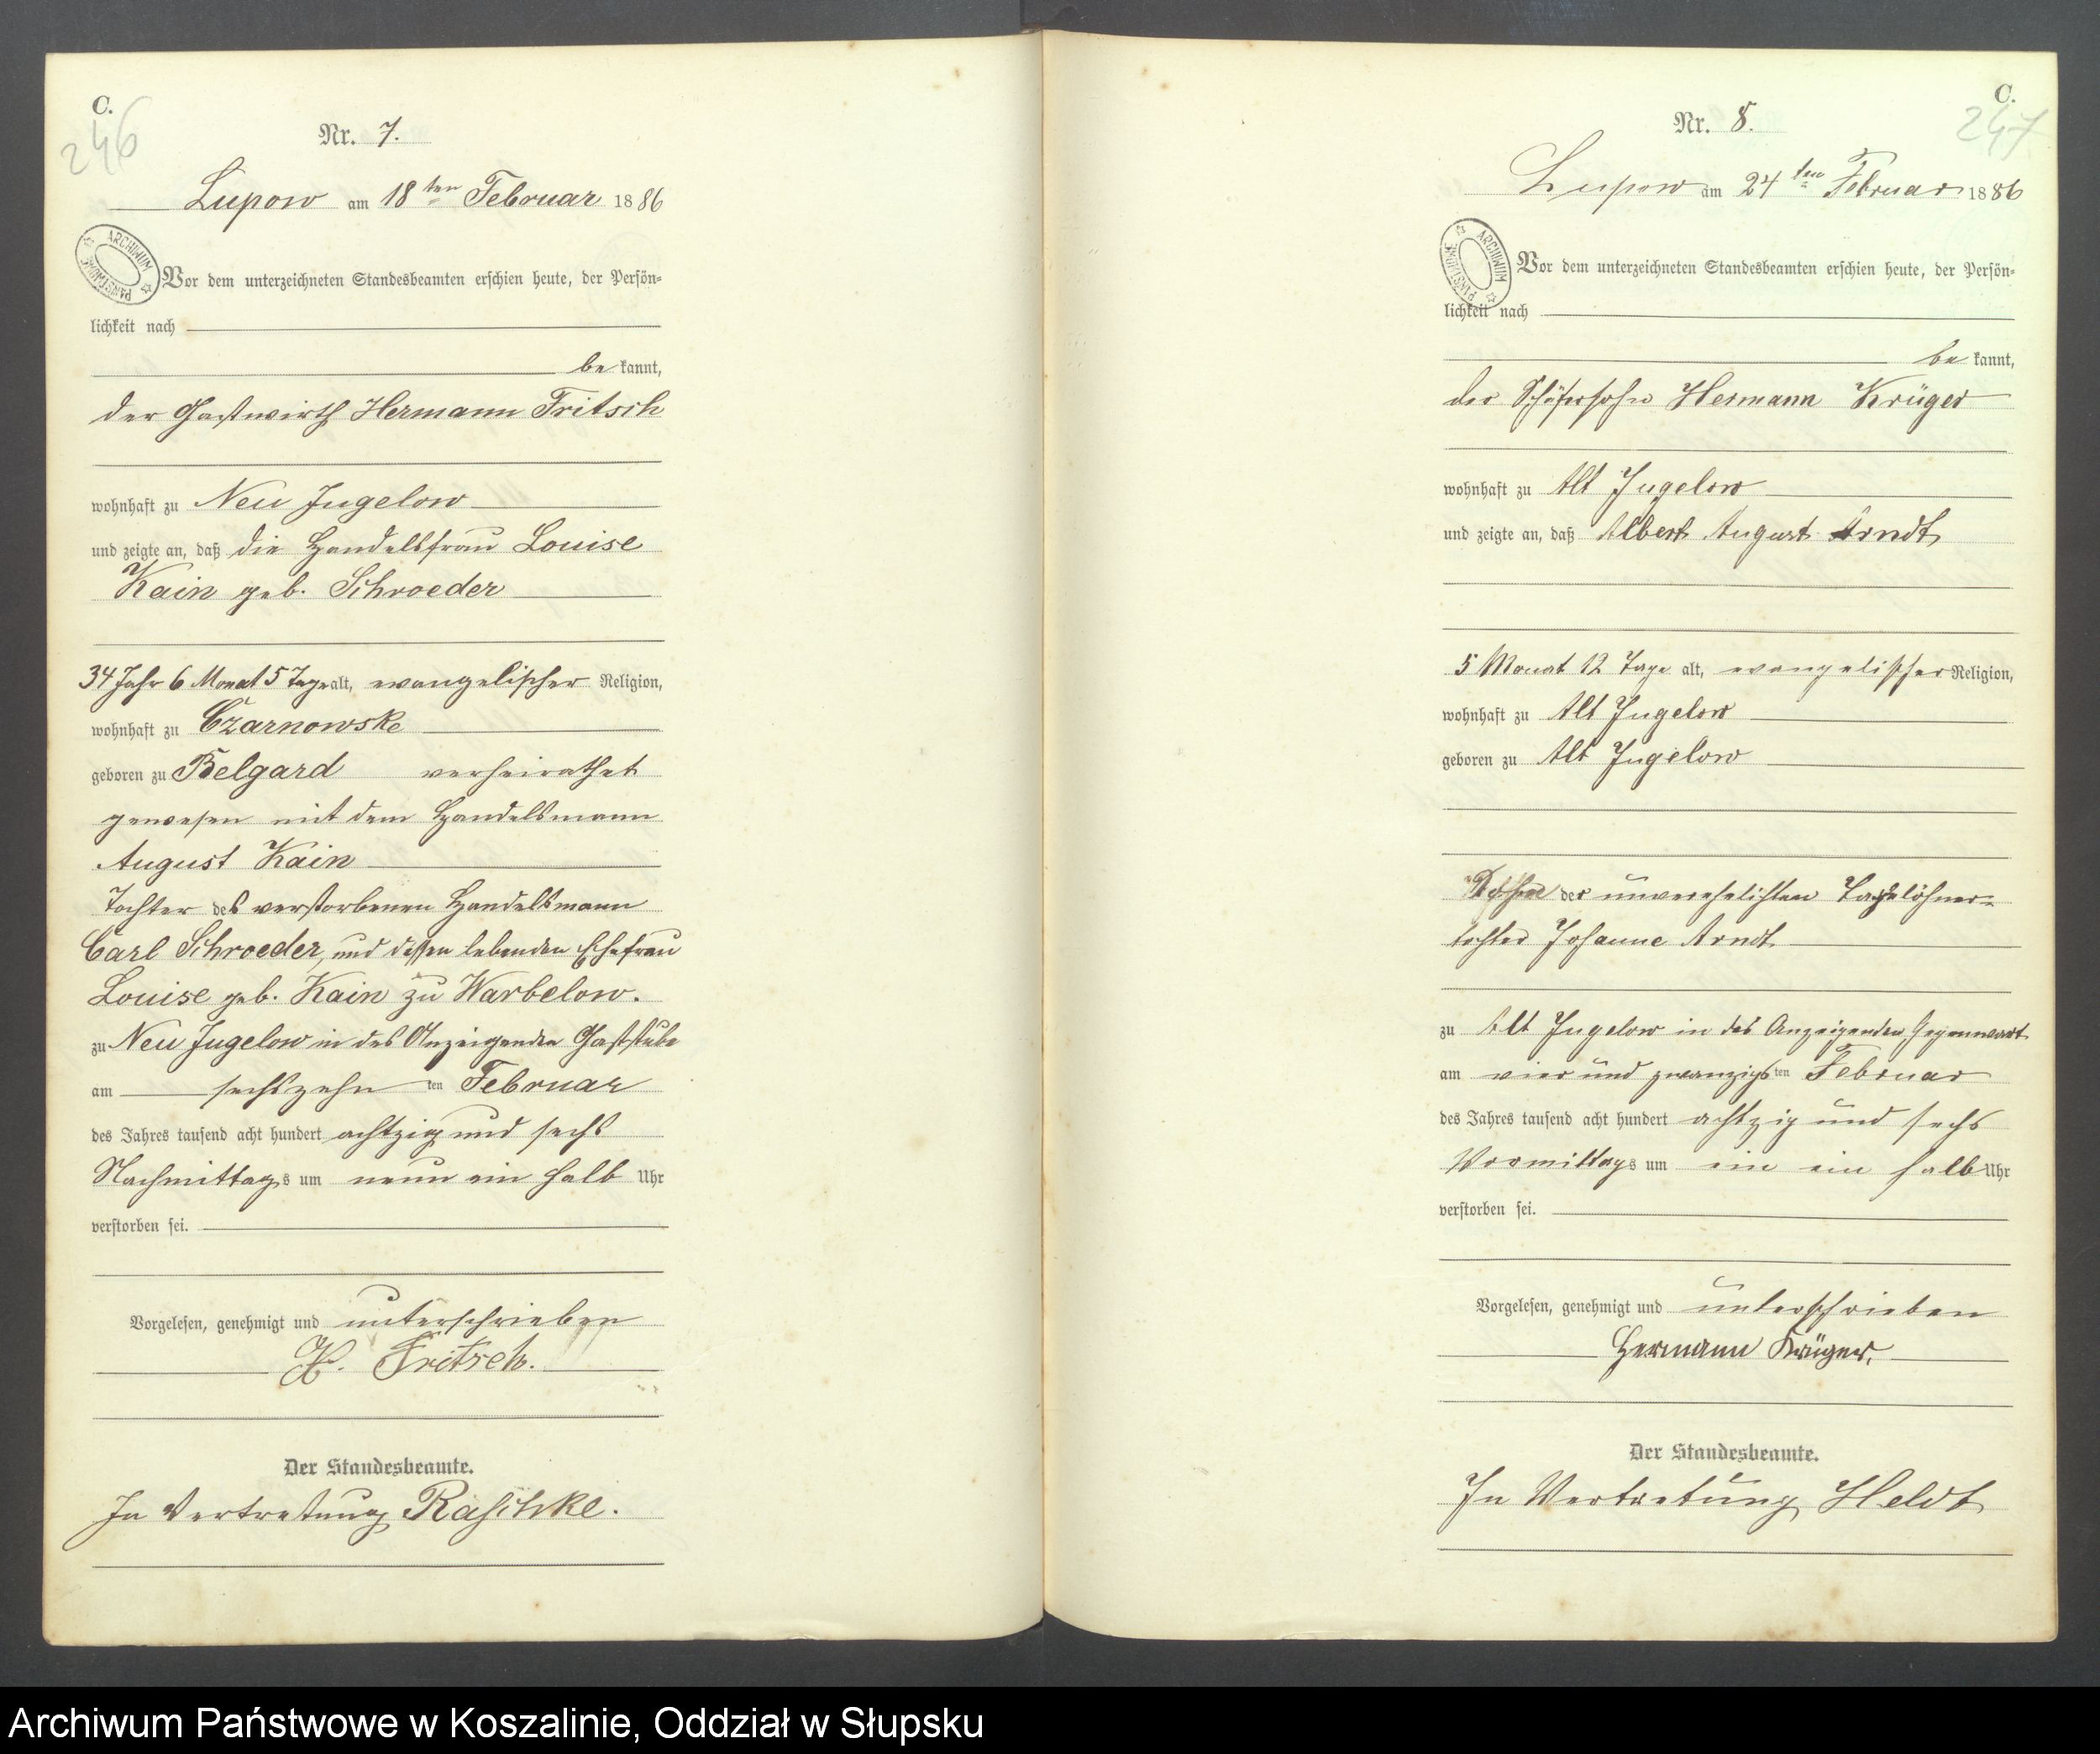 C.
246
Nr. 7.
Lupow am 18ten Februar 1886
ARCHIWUM PAŃSTWOWE
Vor dem unterzeichneten Standesbeamten erschien heute, der Persön-
lichkeit nach
be kannt,
der Gastwirth Hermann Fritsch
wohnhaft zu Neu Jugelow
und zeigte an, daß die Handelsfrau Louise
Kain geb. Schroeder
34 Jahr 6 Monat 5 Tage alt, evangelischer Religion,
wohnhaft zu Czarnowske
geboren zu Belgard verheirathet
gewesen mit dem Handelsmann
August Kain
Tochter des verstorbenen Handelsmann
Carl Schroeder, und dessen lebenden Ehefrau
Louise geb. Kain zu Warbelow.
zu Neu Jugelow in des Anzeigenden Gaststube
am sechszehn ten Februar
des Jahres tausend acht hundert achtzig und sechs
Nachmittags um neun ein halb Uhr
verstorben sei.
Vorgelesen, genehmigt und unterschrieben
H. Fritsch.
Der Standesbeamte.
In Vertretung Raschke.
C.
247
Nr. 8.
Lupow am 24ten Februar 1886
ARCHIWUM PAŃSTWOWE
Vor dem unterzeichneten Standesbeamten erschien heute, der Persön-
lichkeit nach
be kannt,
der Schäfersohn Hermann Krüger
wohnhaft zu Alt Jugelow
und zeigte an, daß Albert August Arndt
5 Monat 12 Tage alt, evangelischer Religion,
wohnhaft zu Alt Jugelow
geboren zu Alt Jugelow
der unverehelichten Tagelöhner-
tochter Johanne Arndt
zu Alt Jugelow in des Anzeigenden Gegenwart
am vier und zwanzigs ten Februar
des Jahres tausend acht hundert achtzig und sechs
Vormittags um ein ein halb Uhr
verstorben sei.
Vorgelesen, genehmigt und unterschrieben
Hermann Krüger.
Der Standesbeamte.
In Vertretung Heldt
Archiwum Państwowe w Koszalinie, Oddział w Słupsku